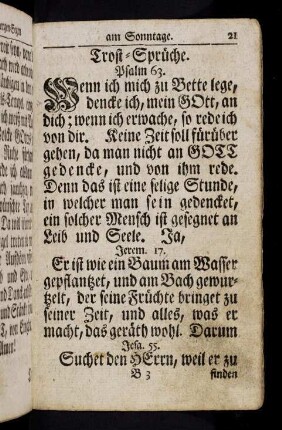 am Sonntage. 21
Trost-Sprüche.
Psalm 63.
Wenn ich mich zu Bette lege,
dencke ich, mein GOtt, an
dich; wenn ich erwache, so rede ich
von dir. Keine Zeit soll fürüber
gehen, da man nicht an GOTT
gedencke, und von ihm rede.
Denn das ist eine selige Stunde,
in welcher man sein gedencket,
ein solcher Mensch ist gesegnet an
Leib und Seele. Ja,
Jerem. 17.
Er ist wie ein Baum am Wasser
gepflantzet, und am Bach gewur-
tzelt, der seine Früchte bringet zu
seiner Zeit, und alles, was er
macht, das geräth wohl. Darum
Jesa. 55.
Suchet den HErrn, weil er zu
B 3 finden